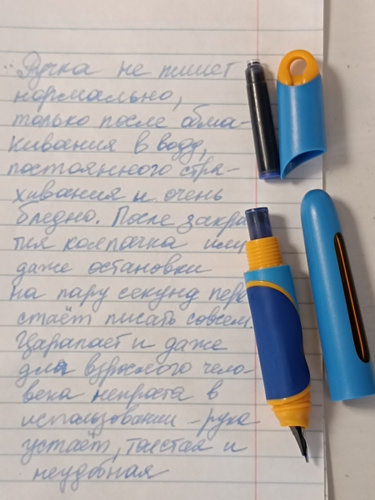 Ручка не пишет
нормально,
только после обма-
кивания в воду,
постоянного стря-
хивания и очень
бледно. После закры
тия колпачка или
даже остановки
на пару секунд пере
стаёт писать совсем.
Царапает и даже
для взрослого чело-
века непроста в
использовании - рука
устаёт, толстая и
неудобная